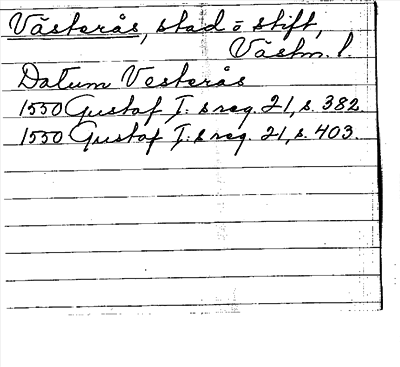 Västerås, stad o stift,
Västm. l.
Datum Vesterås
1550 Gustaf I:s reg. 21, s. 382.
1550 Gustaf I:s reg. 21, s. 403.